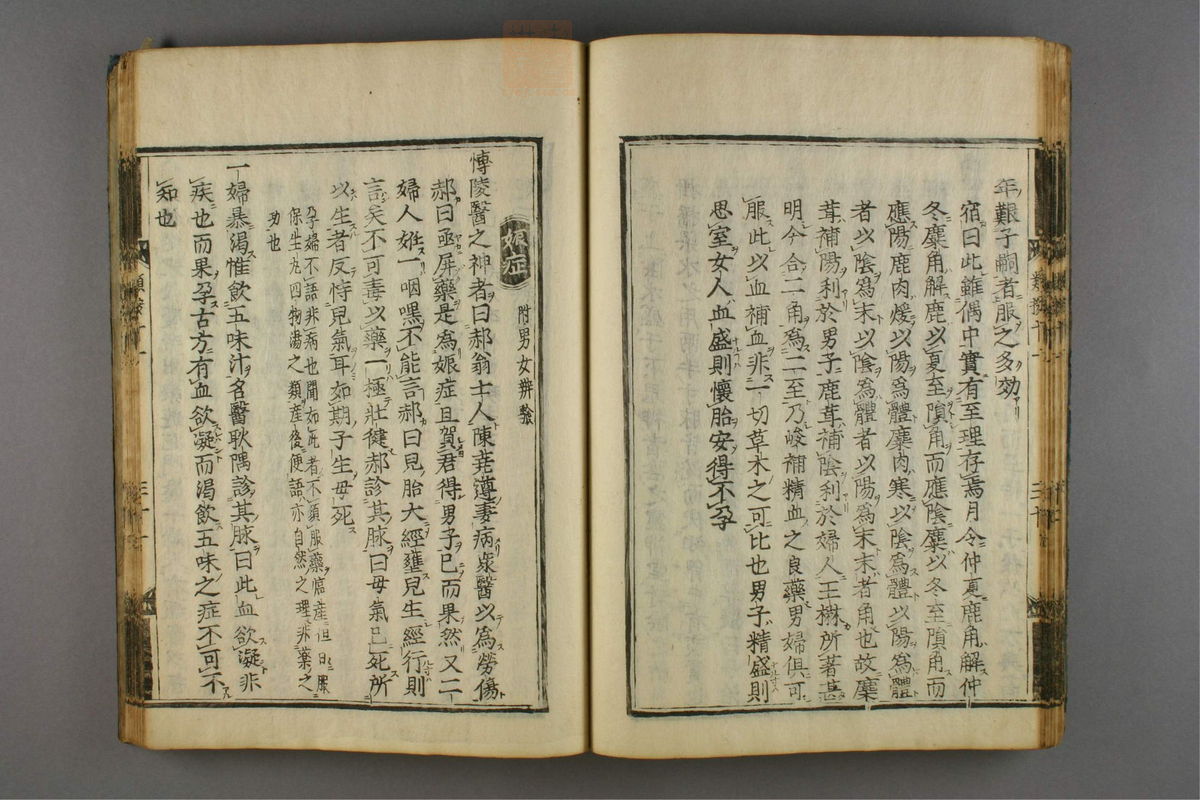 年艱子嗣者服之多効
宿曰此雖偶中實有至理存焉月令仲夏鹿角解仲
冬麋角解鹿以夏至隕角而應陰麋以冬至隕角而
應陽鹿肉煖以陽為體麋肉寒以陰為體以陽為體
者以陰為末以陰為體者以陽為末末者角也故麋
茸補陽利於男子鹿茸補陰利於婦人王楙所著甚
明今合二角為一二至乃峻補精血之良藥男婦俱可
服此以血補血非一切草木之可比也男子精盛則
思室女人血盛則懷胎安得不孕
娠症 附男女辨驗
愽陵醫之神者曰郝翁士人陳堯遵妻病衆醫以為勞傷
郝曰亟屏藥是為娠症且賀君得男子已而果然又二
婦人姙一咽嘿不能言郝曰兒胎大經壅兒生經行則
言矣不可毒以藥一極壯健郝診其脉曰母氣已死所
以生者反恃兒氣耳如期子生母死
孕婦不語非病也聞如此者不須服藥臨產但日服
保生丸四物湯之類產後便語亦自然之理非藥之
功也
一婦暴渇惟飲五味汁名醫耿隅診其脉曰此血欲凝非
疾也而果孕古方有血欲凝而渇飲五味之症不可不
知也